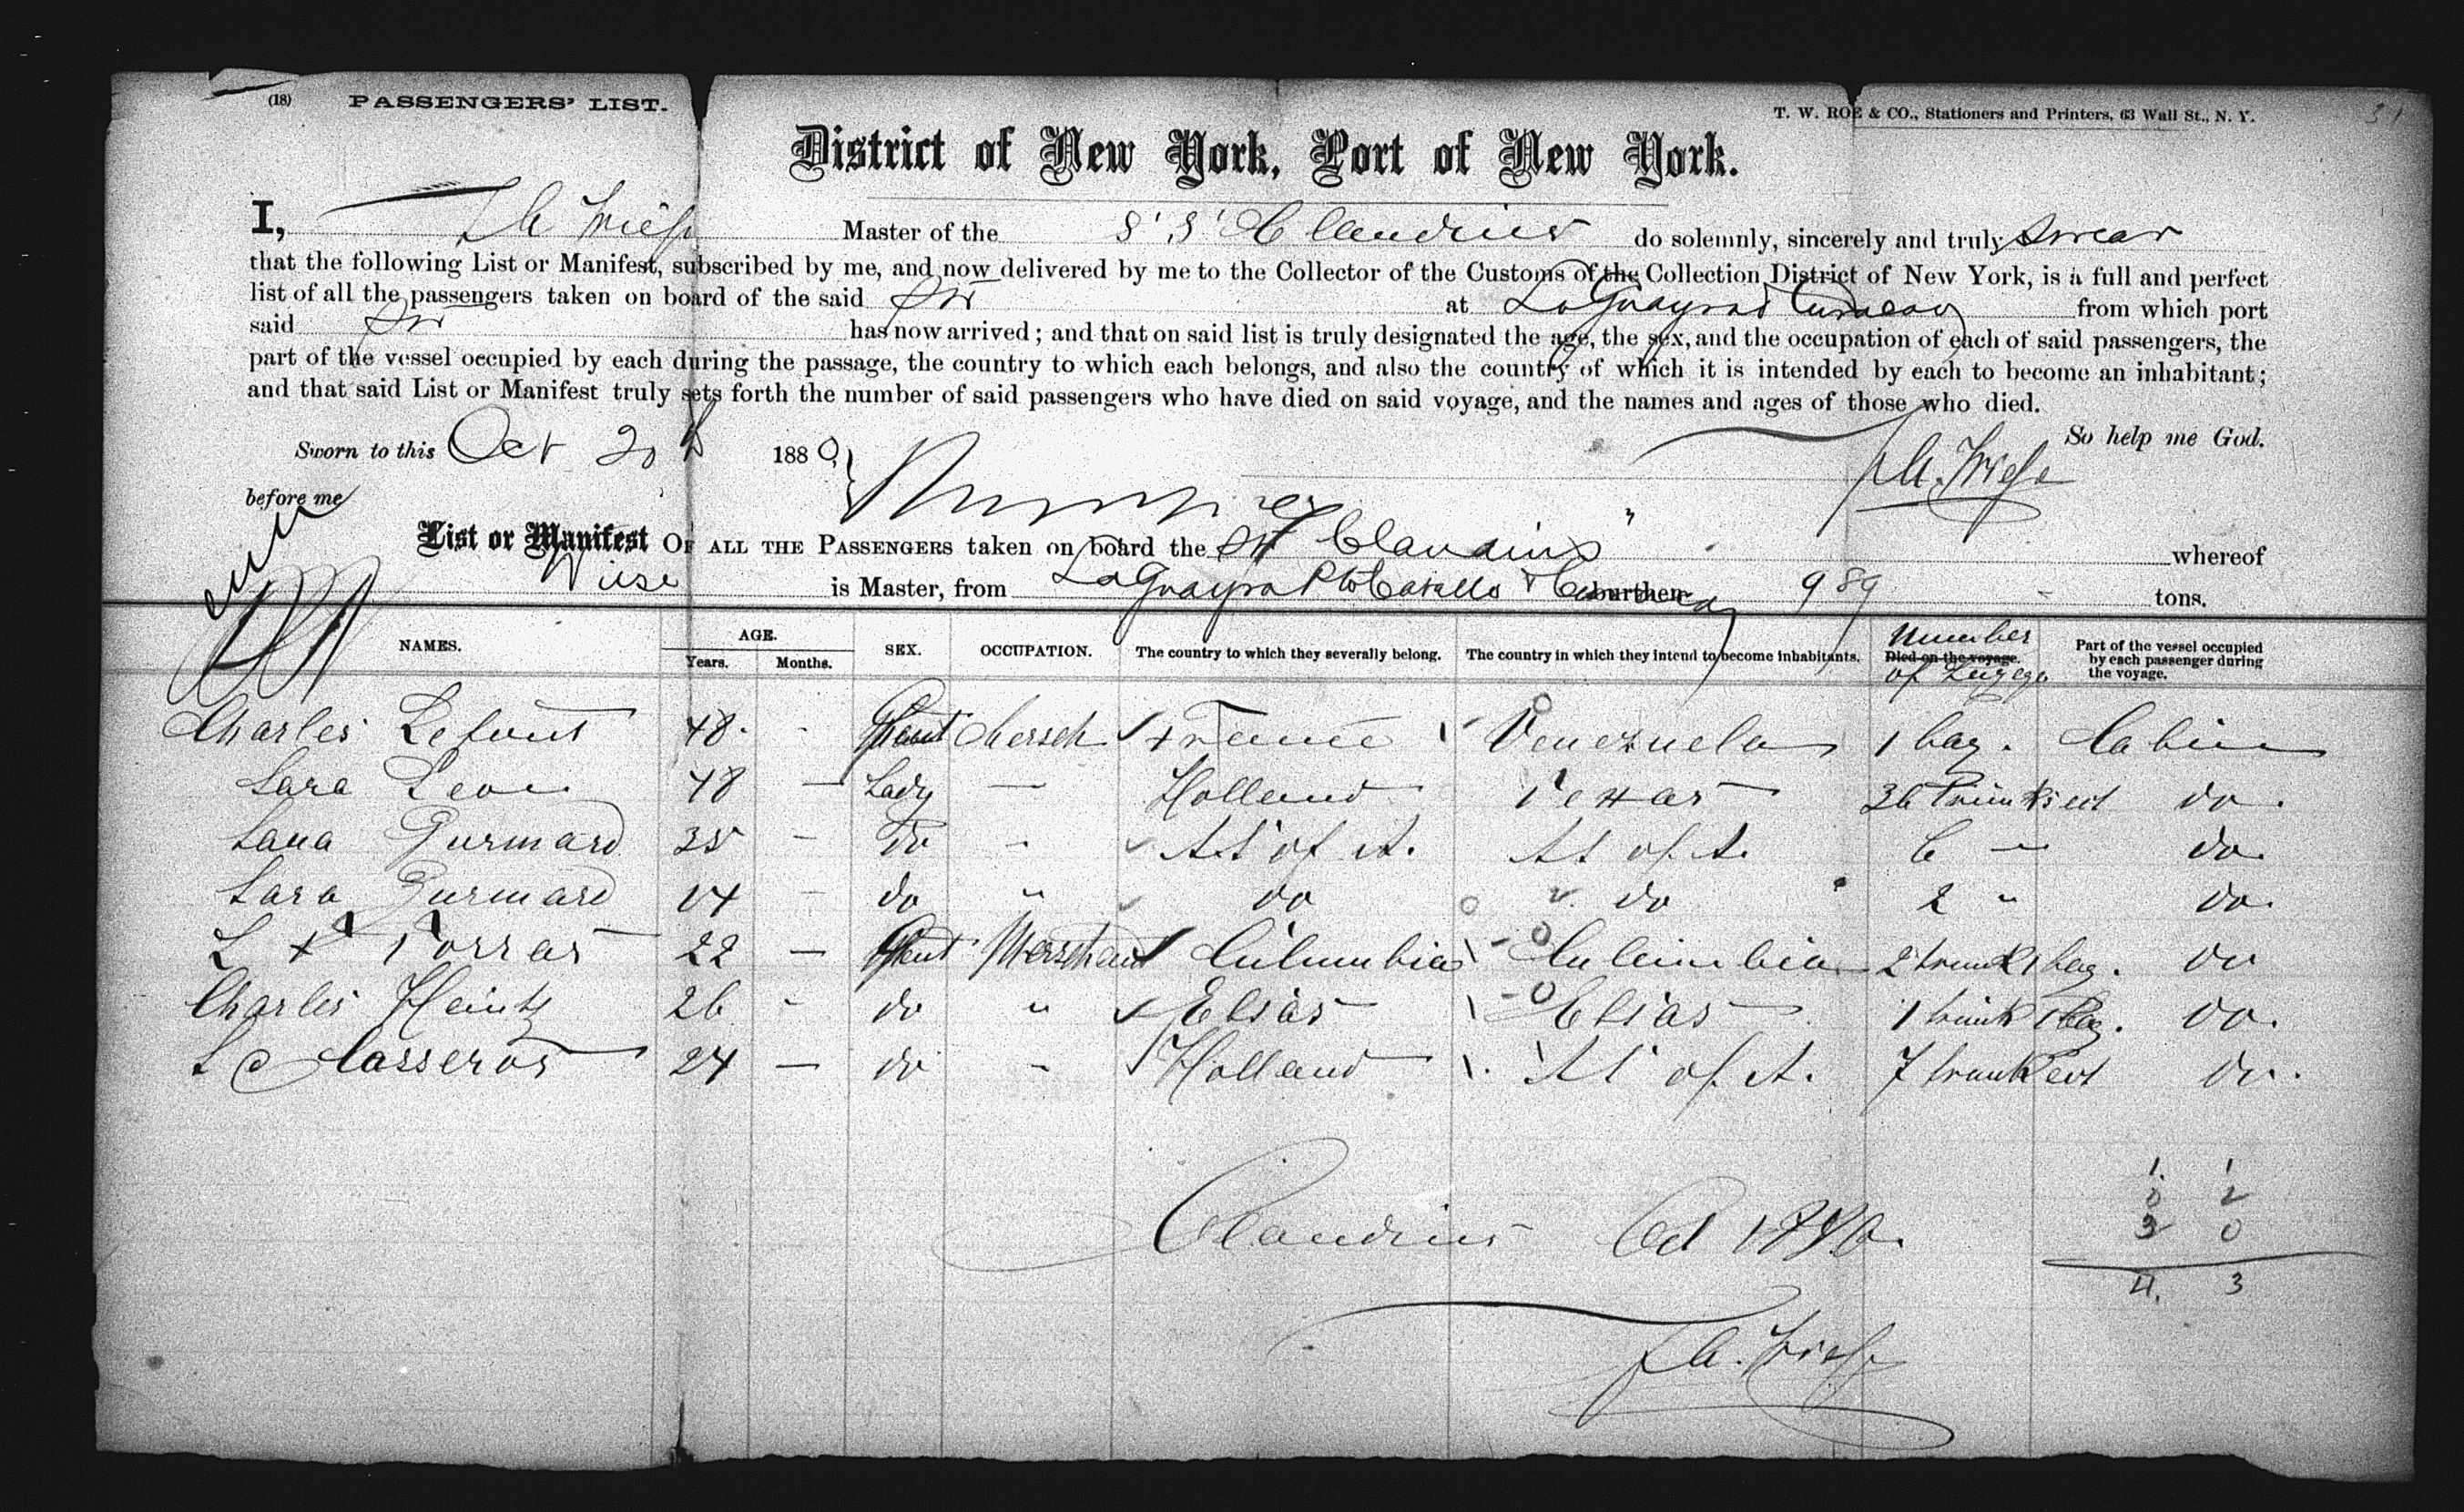 (18) PASSENGERS' LIST.
T. W. ROE & CO., Stationers and Printers, 63 Wall St., N. Y.
31
District of New York, Port of New York.
I, Wiese Master of the S.S. Claudius do solemnly, sincerely and truly swear
that the following List or Manifest, subscribed by me, and now delivered by me to the Collector of the Customs of the Collection District of New York, is a full and perfect
list of all the passengers taken on board of the said Str at LaGuayra & Curacao from which port
said Str has now arrived; and that on said list is truly designated the age, the sex, and the occupation of each of said passengers, the
part of the vessel occupied by each during the passage, the country to which each belongs, and also the country of which it is intended by each to become an inhabitant;
and that said List or Manifest truly sets forth the number of said passengers who have died on said voyage, and the names and ages of those who died.
So help me God.
Sworn to this Oct 20th 1880,
Wiese
before me
List or Manifest OF ALL THE PASSENGERS taken on board the Str "Claudius" whereof
Wiese is Master, from LaGuayra Pto Cabello & Curacao burthen 989 tons.
NAMES. AGE. Years. Months. SEX. OCCUPATION. The country to which they severally belong. The country in which they intend to become inhabitants. Died on the voyage. Number of Part of the vessel occupied by each passenger during the voyage.
Charles 48 - Gent Mersch France Venezuela 1 bag. Cabin
Sara Leon 48 - Lady - Holland Texas 36 Trunks do.
Gurmard 35 - do - S of A. S of A. 6 - do.
Sara Gurmard 14 - do " do do 2 " do.
L Porras 22 - Gent Merschant Columbia Columbia 2 trunk 1 bag. do
Charles Heintz 26 - do " Elsas Elsas 1 trunk 1 bag. do.
24 - do - Holland S of A. 7 trunk do.
1. 1
0 2
3 0
4. 3
Claudius Oct 1880.
Wiese